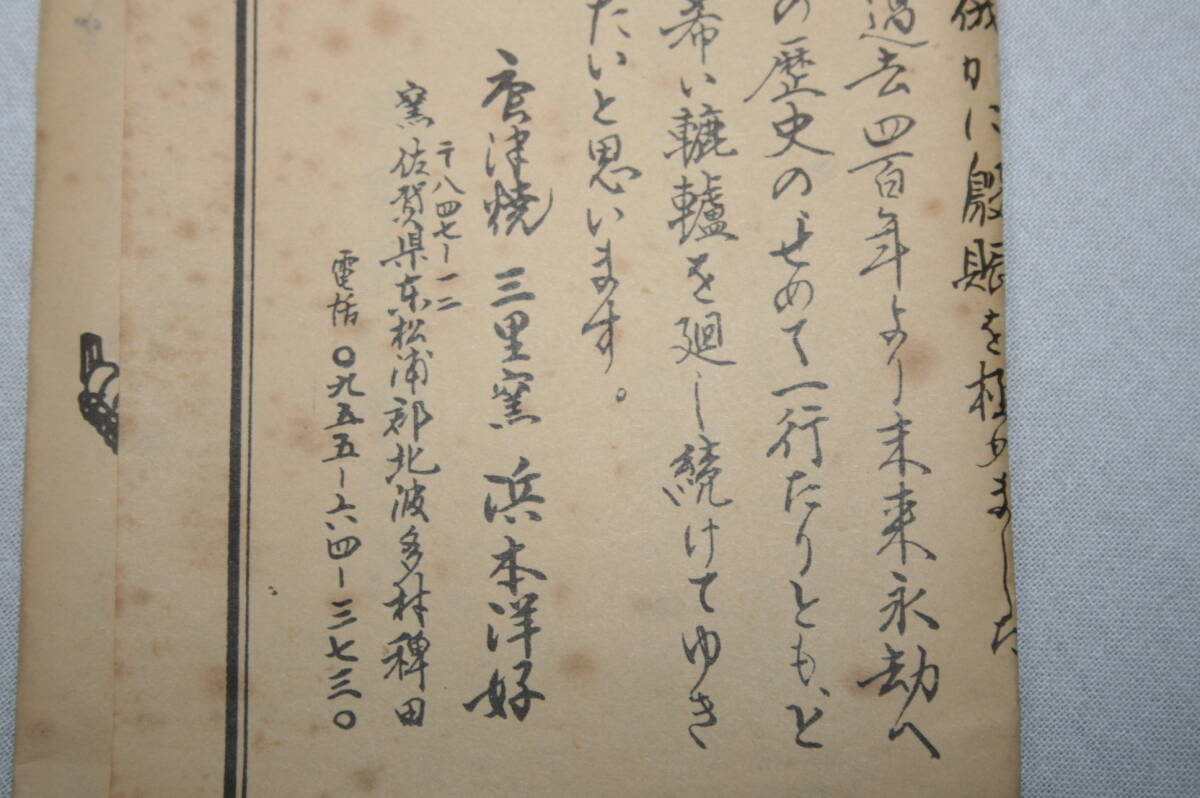 俄かに殷賑を極めました
過去四百年より未来永劫へ
の歴史のせめて一行たりとも、と
希い轆轤を廻し続けてゆき
たいと思います。
唐津焼 三里窯 浜本洋好
〒八四七ー一二
窯 佐賀県東松浦郡北波多村稗田
電話 〇九五五ー六四ー三七三〇